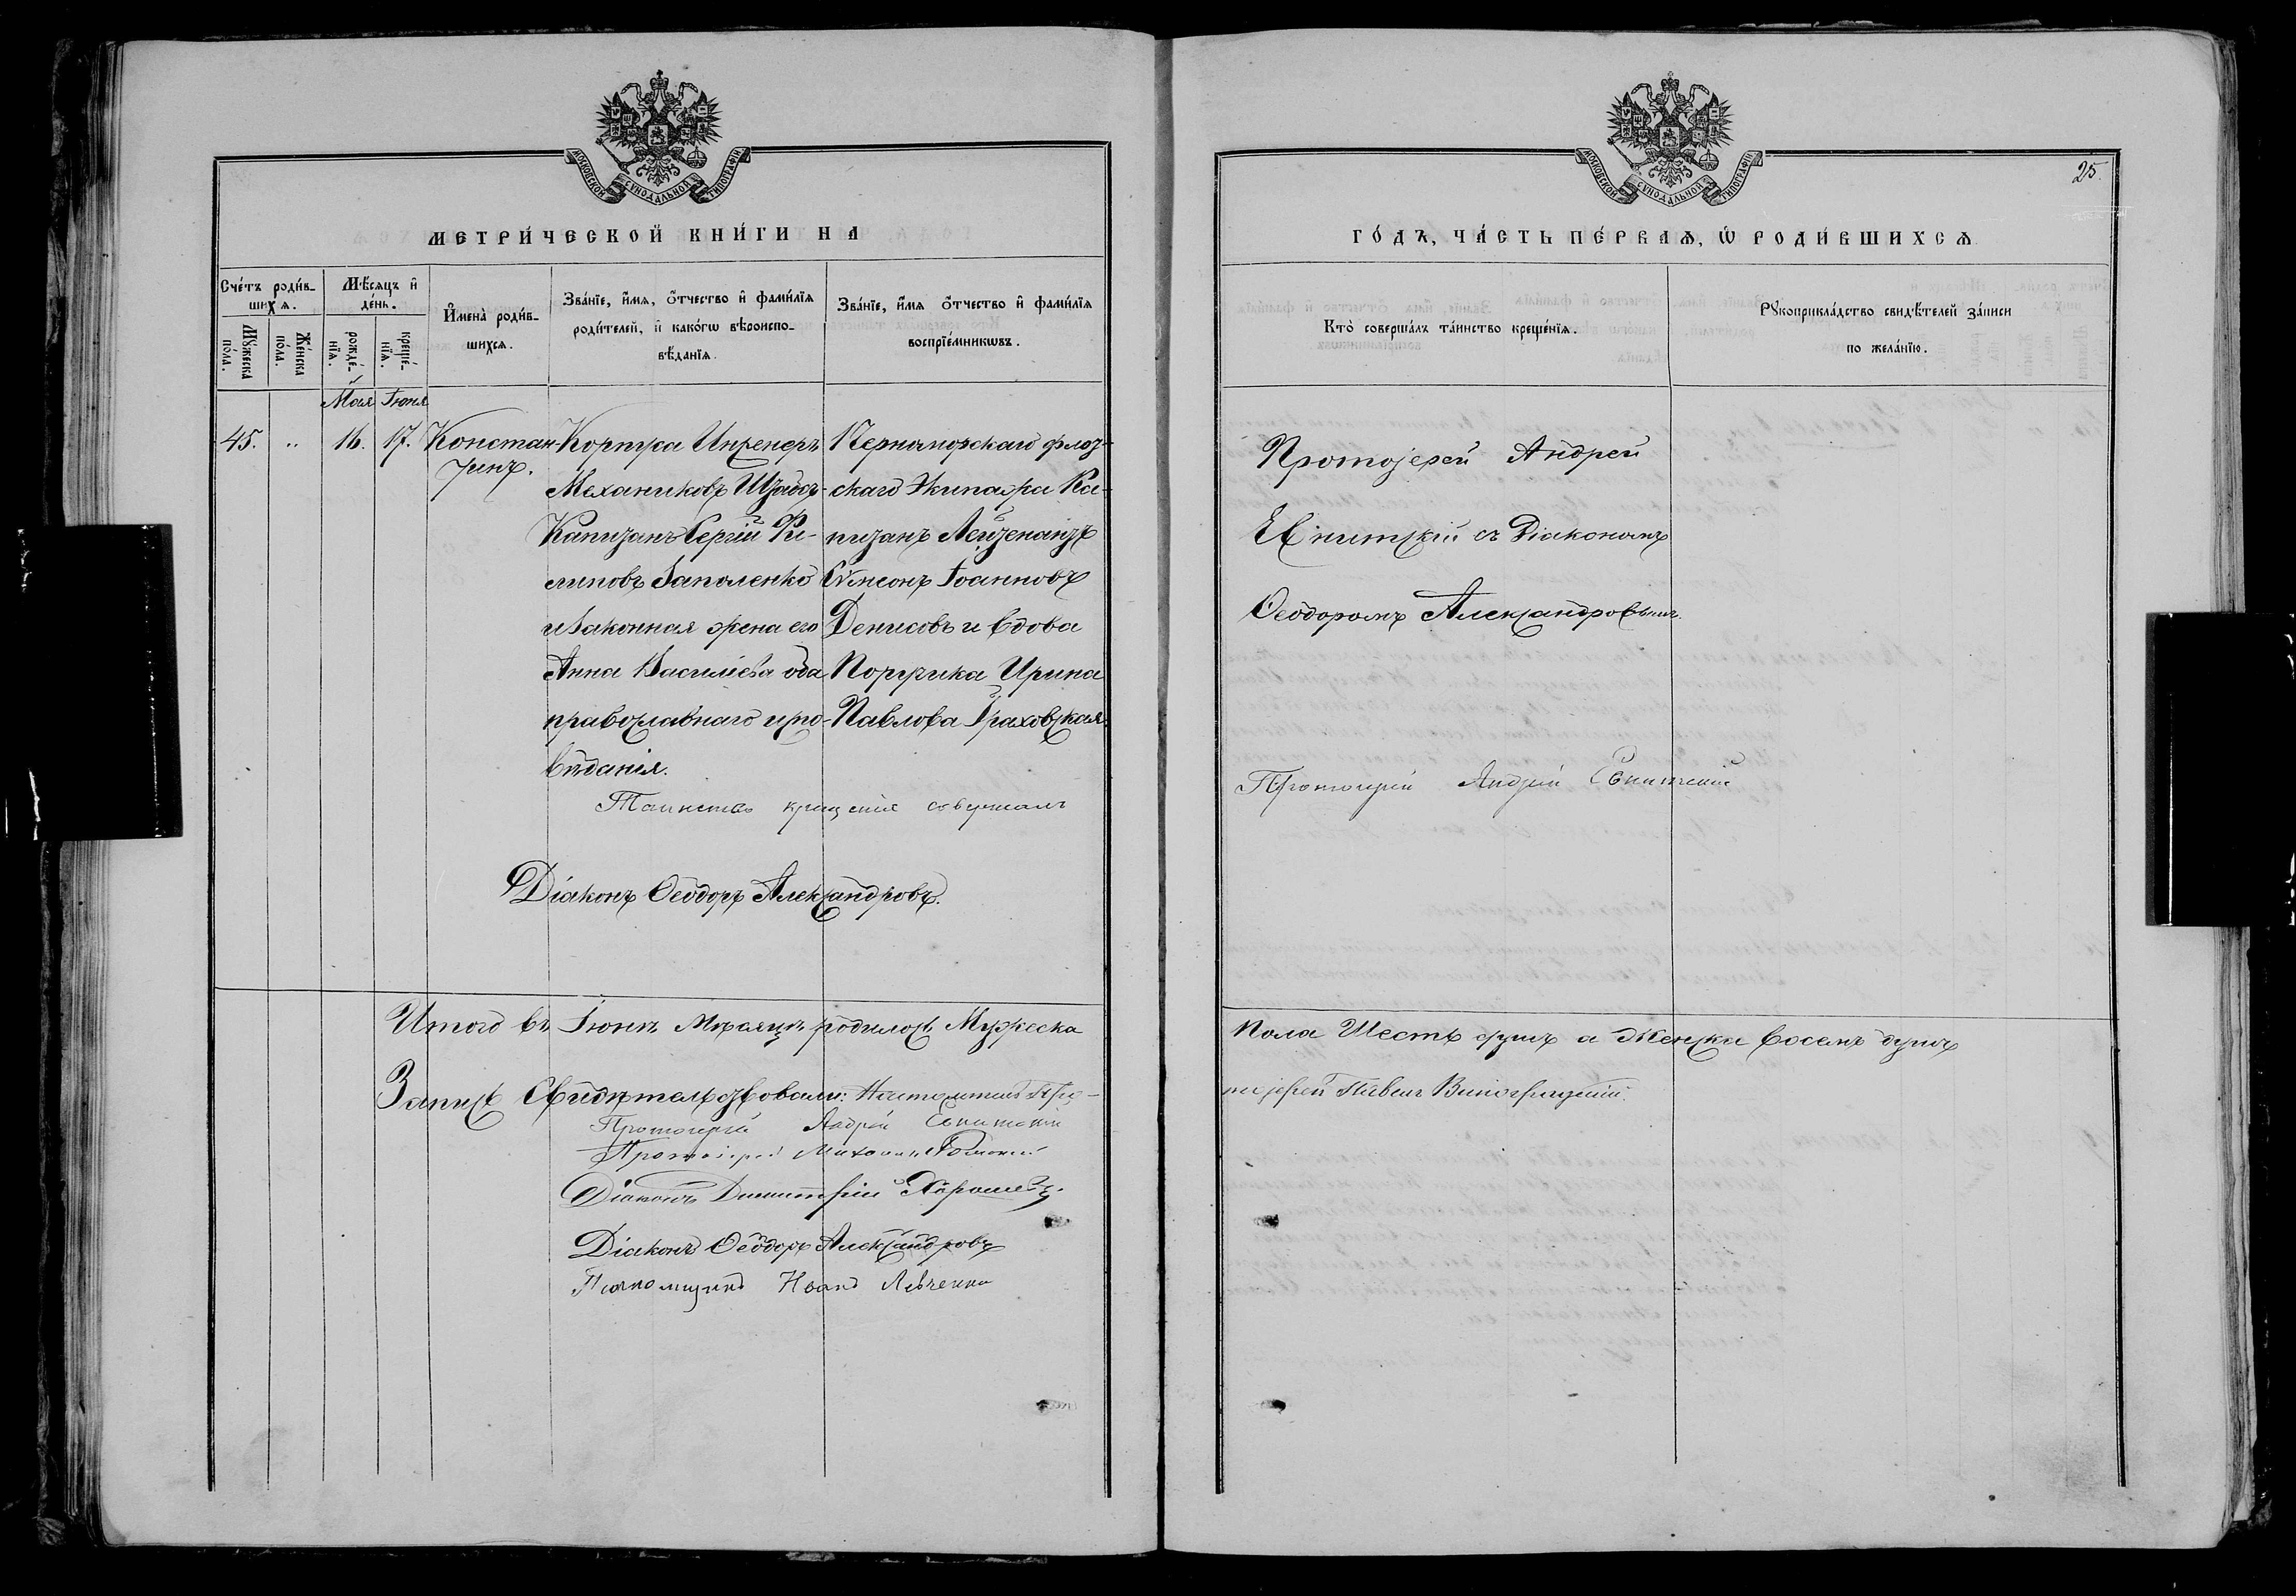 МОСКОВСКОЙ СУНОДАЛЬНОЙ ТИПОГРАФІИ
МЕТРИ́ЧЕСКОЙ КНИ́ГИ НА
Сче́тъ роди́в-
шихся.
Мѣ́сяцъ и҆
де́нь.
И҆мена̀ роди́в-
шихся.
Зва́нїе, и҆́мя, ѻ҆́тчество и҆ фами́лїя
роди́телей, и҆ како́гѡ вѣроиспо-
вѣ́данїя.
Зва́нїе, и҆́мя ѻ҆́тчество и҆ фами́лїя
воспрїе́мникѡвъ.
Мꙋ́жеска по́ла.
Же́нска по́ла.
рожде́-
нїя.
креще́-
нїя.
Мая Іюня
45. .. 16. 17.
Констан-
тинъ.
Корпуса Инженеръ
Механиковъ Штабсъ-
Капитанъ Сергій Фи-
липовъ Заполенко
и Законная жена его
Анна Василіева оба
православнаго испо-
вѣданія.
Черноморскаго флот-
скаго Экипажа Ка-
питанъ Лейтенантъ
Сѵмеонъ Іоанновъ
Денисовъ и вдова
Поручика Ирина
Павлова Граховская.
Таинство крещенія совершалъ
Діаконъ Ѳеодоръ Александровъ.
Итого въ Іюнѣ Мѣсяцѣ родилось Мужеска
Запись Свидѣтельствовали: Настоятель Про-
Протоіерей Андрей Євнитскій
Протоіерей Михаилъ
Діаконъ Димитрій
Діаконъ Ѳеодоръ Александровъ
Псаломщикъ Иванъ Левченко
МОСКОВСКОЙ СУНОДАЛЬНОЙ ТИПОГРАФІИ
25.
ГО́ДЪ, ЧА́СТЬ ПЕ́РВАЯ, Ѡ҆ РОДИ́ВШИХСЯ
Кто̀ соверша́лъ та́инство креще́нїя.
Рꙋкоприкла́дство свидѣ́телей за́писи
по жела́нїю.
Протоіерей Андрей
Євнитскій съ Діакономъ
Ѳеодоромъ Александровымъ.
Протоіерей Андрей Євнитскій
Пола Шесть душъ а Женска восемь душъ
тоіерей Павелъ